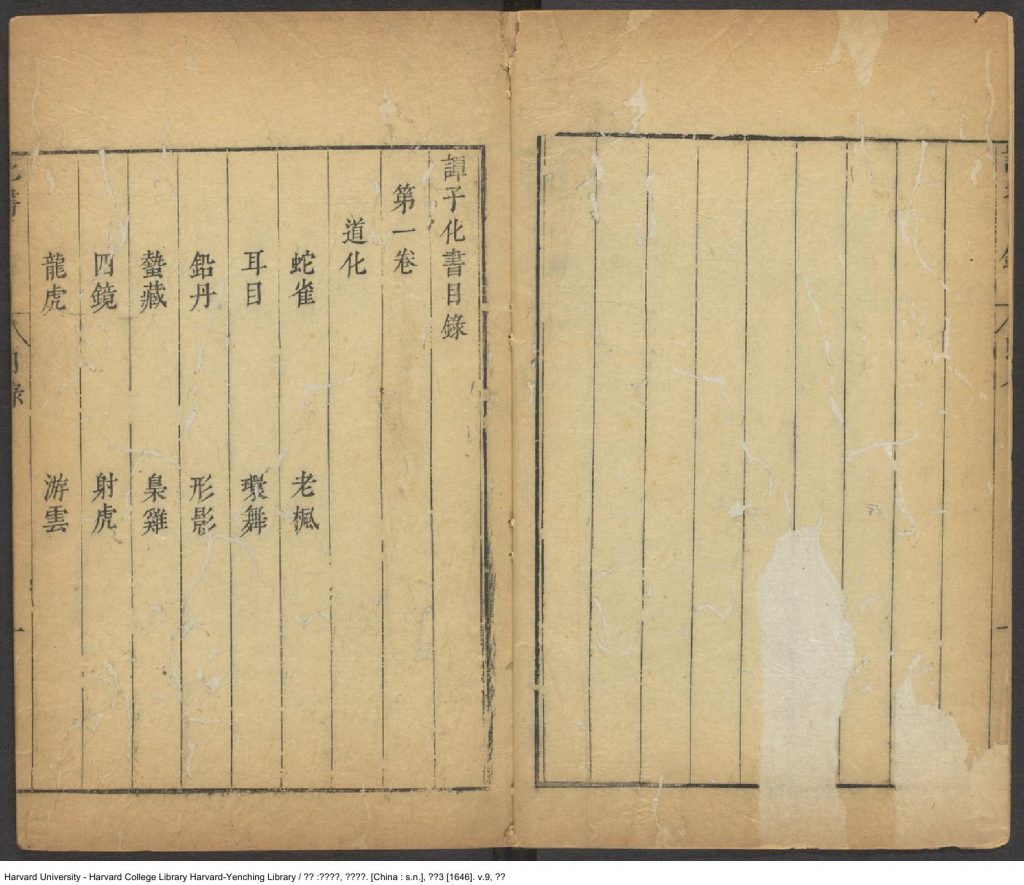 譚子化書目錄
第一卷
道化
蛇雀 老楓
耳目 環舞
鉛丹 形影
蟄藏 梟雞
四鏡 射虎
龍虎 游雲
化書 目錄 一
一
Harvard University - Harvard College Library Harvard-Yenching Library / ?? :????, ????. [China : s.n.], ??3 [1646]. v.9, ??